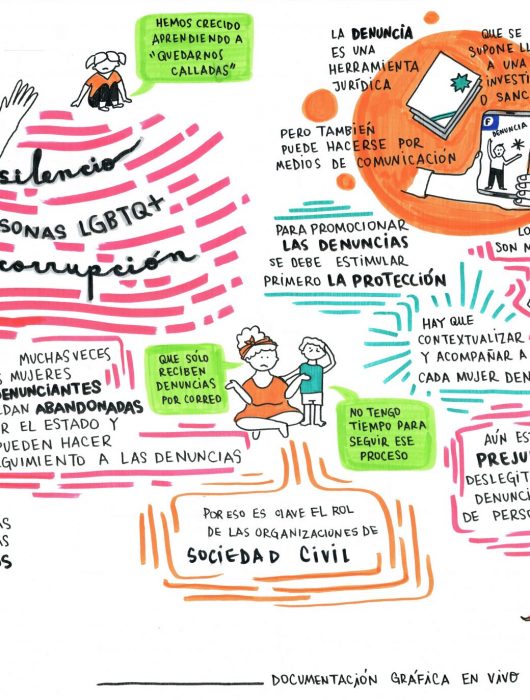 HEMOS CRECIDO
APRENDIENDO A
"QUEDARNOS
CALLADAS"
silencio
SONAS LGBTQ+
corrupción
LA DENUNCIA
ES UNA
HERRAMIENTA
JURÍDICA
QUE SE
SUPONE LL
A UNA
INVESTI
O SANC
DENUNCIA
PERO TAMBIÉN
PUEDE HACERSE POR
MEDIOS DE COMUNICACIÓN
PARA PROMOCIONAR
LAS DENUNCIAS
SE DEBE ESTIMULAR
PRIMERO LA PROTECCIÓN
LO
SON M
HAY QUE
CONTEXTUALIZAR
Y ACOMPAÑAR A
CADA MUJER DEN
MUCHAS VECES
S MUJERES
DENUNCIANTES
DAN ABANDONADAS
R EL ESTADO Y
PUEDEN HACER
GUIMIENTO A LAS DENUNCIAS
QUE SÓLO
RECIBEN
DENUNCIAS
POR CORREO
NO TENGO
TIEMPO PARA
SEGUIR ESE
PROCESO
AÚN ES
PREJU
DESLEGIT
DENUNCI
DE PERSO
POR ESO ES CLAVE EL ROL
DE LAS ORGANIZACIONES DE
SOCIEDAD CIVIL
AS
AS
OS
DOCUMENTACIÓN GRÁFICA EN VIVO